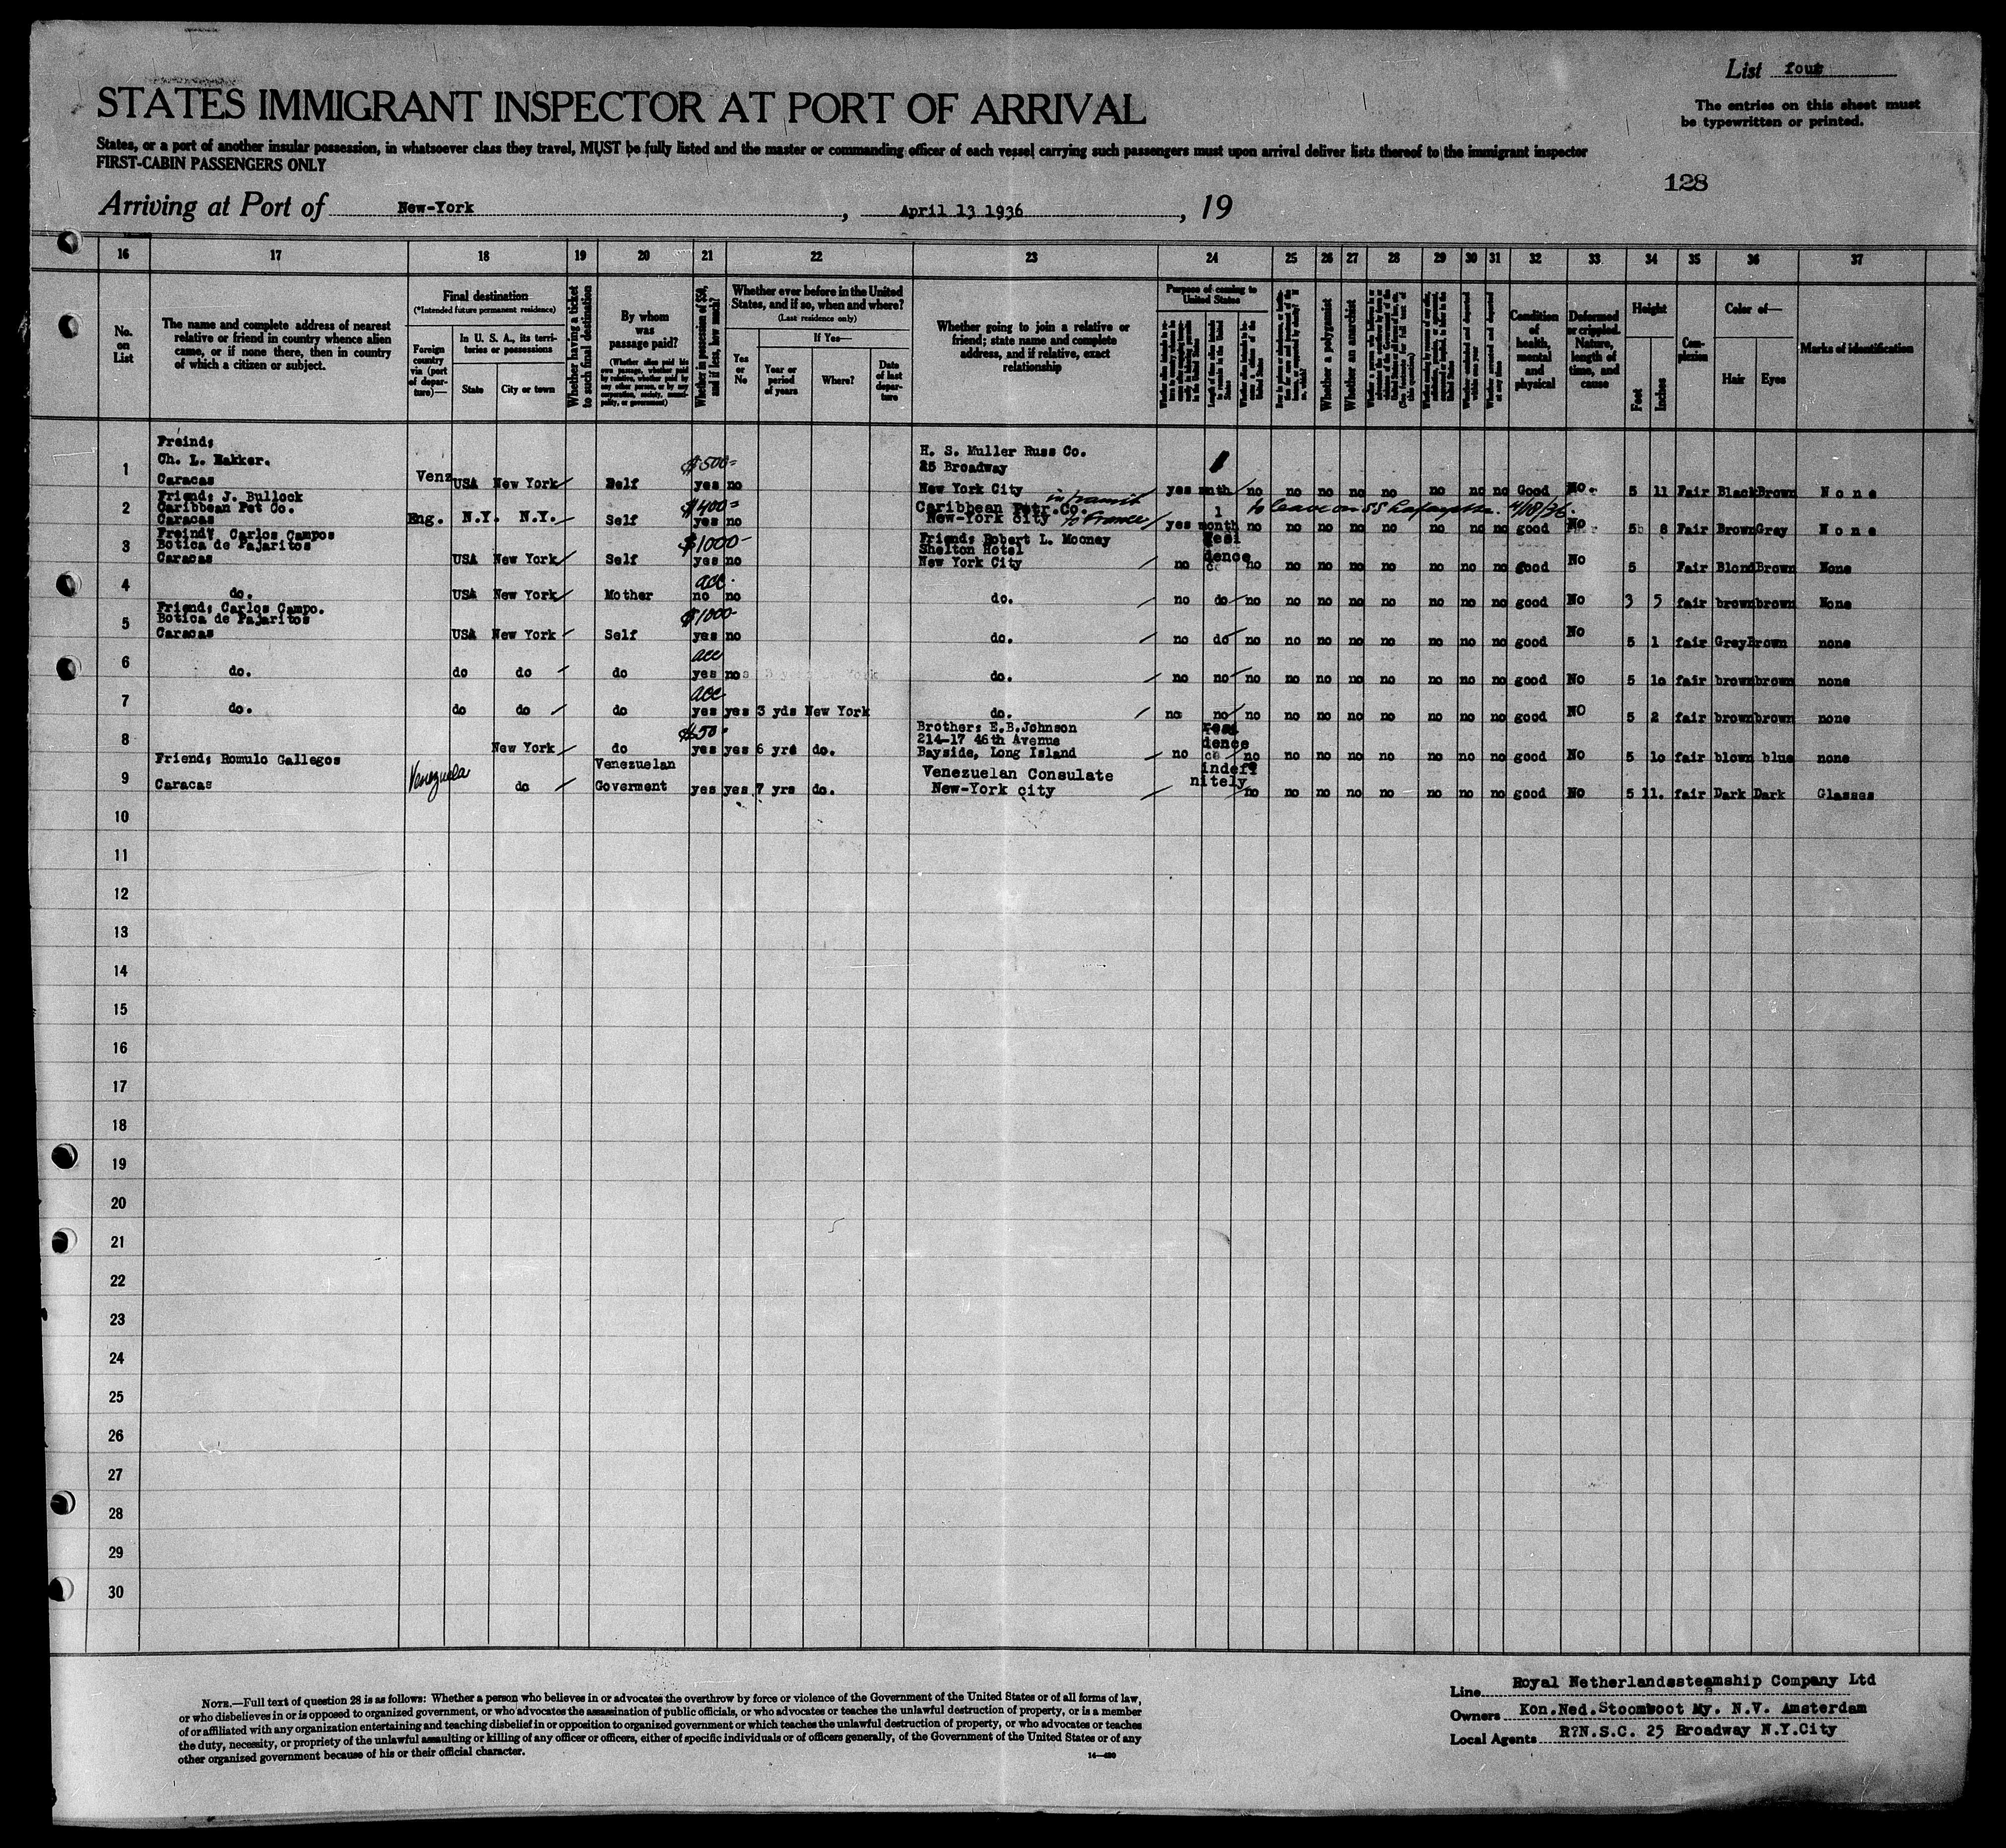 List four
The entries on this sheet must
be typewritten or printed.
STATES IMMIGRANT INSPECTOR AT PORT OF ARRIVAL
States, or a port of another insular possession, in whatsoever class they travel, MUST be fully listed and the master or commanding officer of each vessel carrying such passengers must upon arrival deliver lists thereof to the immigrant inspector
FIRST-CABIN PASSENGERS ONLY
128
Arriving at Port of New-York, April 13 1936, 19
16 17 18 19 20 21 22 23 24 25 26 27 28 29 30 31 32 33 34 35 36 37
No. on List
The name and complete address of nearest
relative or friend in country whence alien
came, or if none there, then in country
of which a citizen or subject.
Final destination
(*Intended future permanent residence)
Foreign country via (port of departure)—
In U. S. A., its territories or possessions
State
City or town
Whether having a ticket to such final destination
By whom was passage paid?
(Whether alien paid his own passage, whether paid by relative, whether paid by any other person, or by any corporation, society, municipality, or government)
Whether in possession of $50, and if less, how much?
Whether ever before in the United States, and if so, when and where?
(Last residence only)
Yes or No
If Yes—
Year or period of years
Where?
Date of last departure
Whether going to join a relative or
friend; state name and complete
address, and if relative, exact
relationship
Purpose of coming to United States
Whether a polygamist
Whether an anarchist
Condition of health, mental and physical
Deformed or crippled. Nature, length of time, and cause
Height
Feet
Inches
Complexion
Color of—
Hair
Eyes
Marks of identification
1 Freind; Ch. L. Hakker. Caracas Venz USA New York Self $500= yes no H. S. Muller Russ Co. 25 Broadway New York City yes 1 mnth no no no no no no no no Good No. 5 11 Fair Black Brown None
2 Friend; J. Bullock Caribbean Pet Co. Caracas Eng. N.Y. N.Y. Self $400= yes no Caribbean Petr. Co. New-York city in transit to France yes 1 month no to leave on SS Lafayette 4/18/36. no no no no no no no good No 5 8 Fair Brown Grey None
3 Freind; Carlos Campos Botica de Pajaritos Caracas USA New York Self $1000- yes no Friend; Robert L. Mooney Shelton Hotel New York City no Resi dence no no no no no no no no good No 5 Fair Blond Brown None
4 do. USA New York Mother acc. no no do. no do no no no no no no no no good No 3 5 fair brown brown None
5 Friend; Carlos Campo. Botica de Pajaritos Caracas USA New York Self $1000- yes no do. no do no no no no no no no no good No 5 1 fair Grey Brown none
6 do. do do do acc yes no do. no no no no no no no no no no good No 5 10 fair brown brown none
7 do. do do do acc yes yes 3 yds New York do. no no no no no no no no no no good NO 5 2 fair brown brown none
8 New York do $650- yes yes 6 yrs do. Brother; E.B.Johnson 214-17 46th Avenue Bayside, Long Island no resi dence no no no no no no no no good No 5 10 fair blown blue none
9 Friend; Romulo Gallegos Caracas Venezuela do Venezuelan Goverment yes yes 7 yrs do. Venezuelan Consulate New-York city indefi nitely no no no no no no no no good No 5 11. fair Dark Dark Glasses
10
11
12
13
14
15
16
17
18
19
20
21
22
23
24
25
26
27
28
29
30
NOTE.—Full text of question 28 is as follows: Whether a person who believes in or advocates the overthrow by force or violence of the Government of the United States or of all forms of law,
or who disbelieves in or is opposed to organized government, or who advocates the assassination of public officials, or who advocates or teaches the unlawful destruction of property, or is a member
of or affiliated with any organization entertaining and teaching disbelief in or opposition to organized government or which teaches the unlawful destruction of property, or who advocates or teaches
the duty, necessity, or propriety of the unlawful assaulting or killing of any officer or officers, either of specific individuals or of officers generally, of the Government of the United States or of any
other organized government because of his or their official character.
14—430
Line Royal Netherlandssteamship Company Ltd
Owners Kon.Ned.Stoomboot My. N.V. Amsterdam
Local Agents R?N.S.C. 25 Broadway N.Y.City